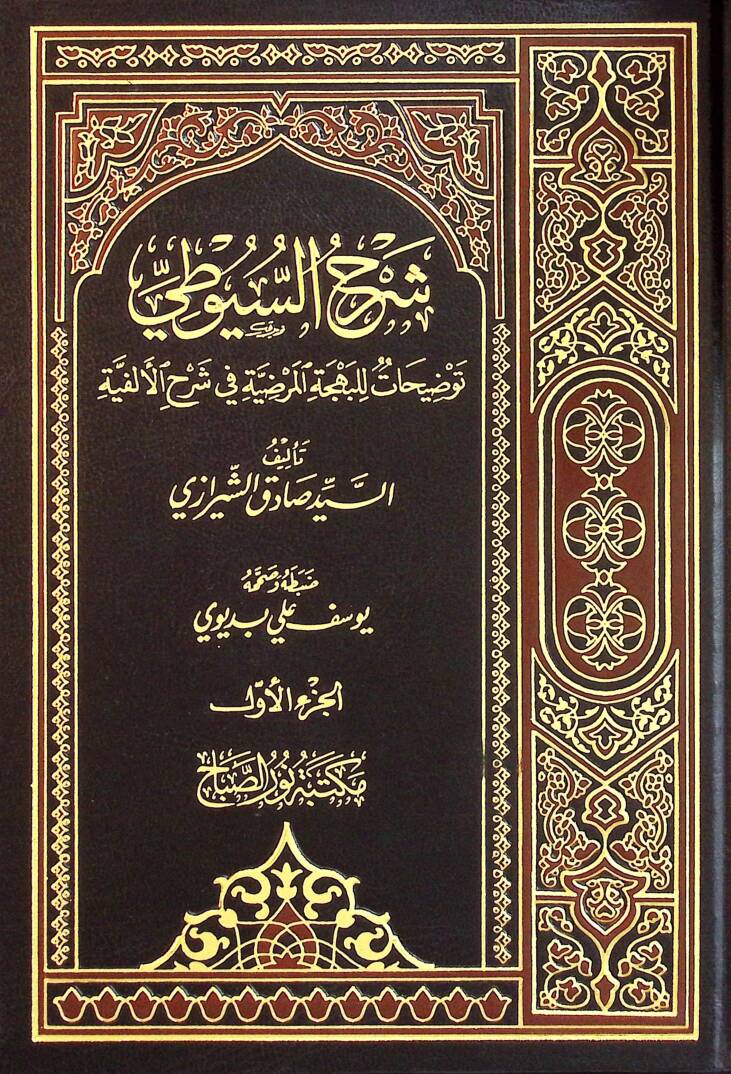 شَرْحُ السُّيُوطِيِّ
تَوْضِيحَاتٌ لِلبَهْجَةِ المَرْضِيَّةِ فِي شَرْحِ الأَلفِيَّةِ
تَأليفُ
السَّيِّد صَادق الشِّيرازي
ضَبَطَهُ وَصَحَّحَهُ
يوسف علي بديوي
الجزء الأوّل
مَكتَبَة نُور الصَّبَاح